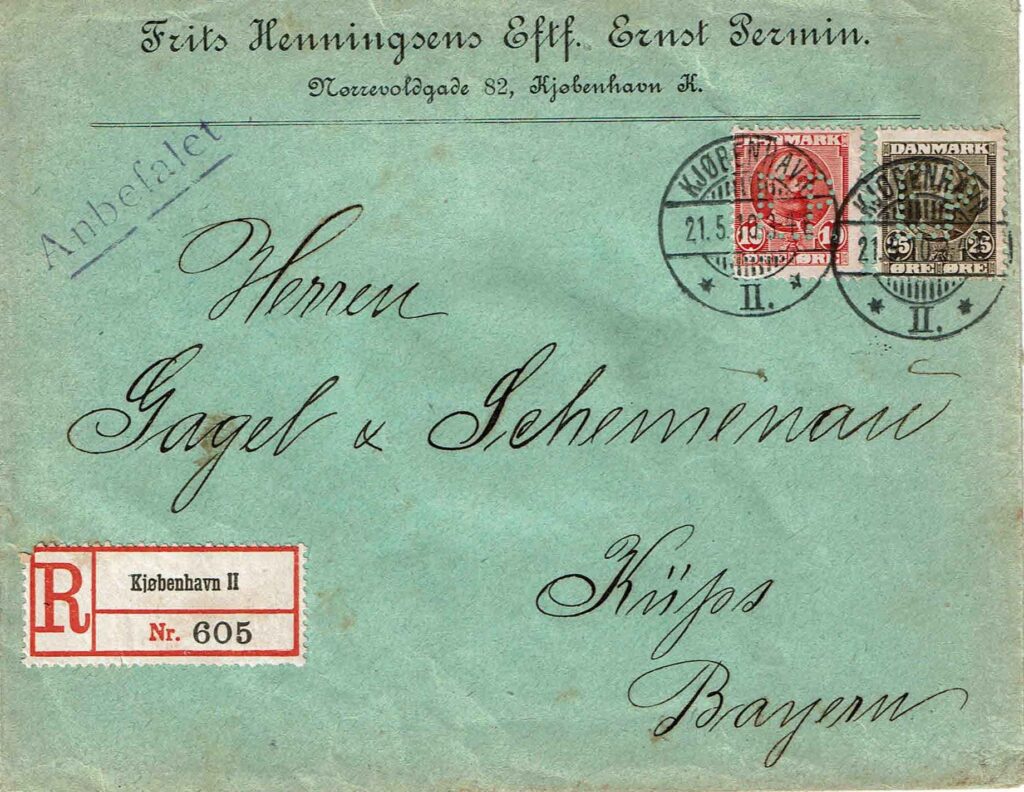 Frits Henningsens Eftf. Ernst Permin.
Nørrevoldgade 82, Kjøbenhavn K.
Anbefalet
DANMARK
10 10
ØRE
KJØBENHAVN
21.5.10.3-4E
II.
DANMARK
25 25
ØRE ØRE
KJØBENHAVN
II.
Herren
Gagel & Schemenau
Küps
Bayern
R
Kjøbenhavn II
Nr. 605